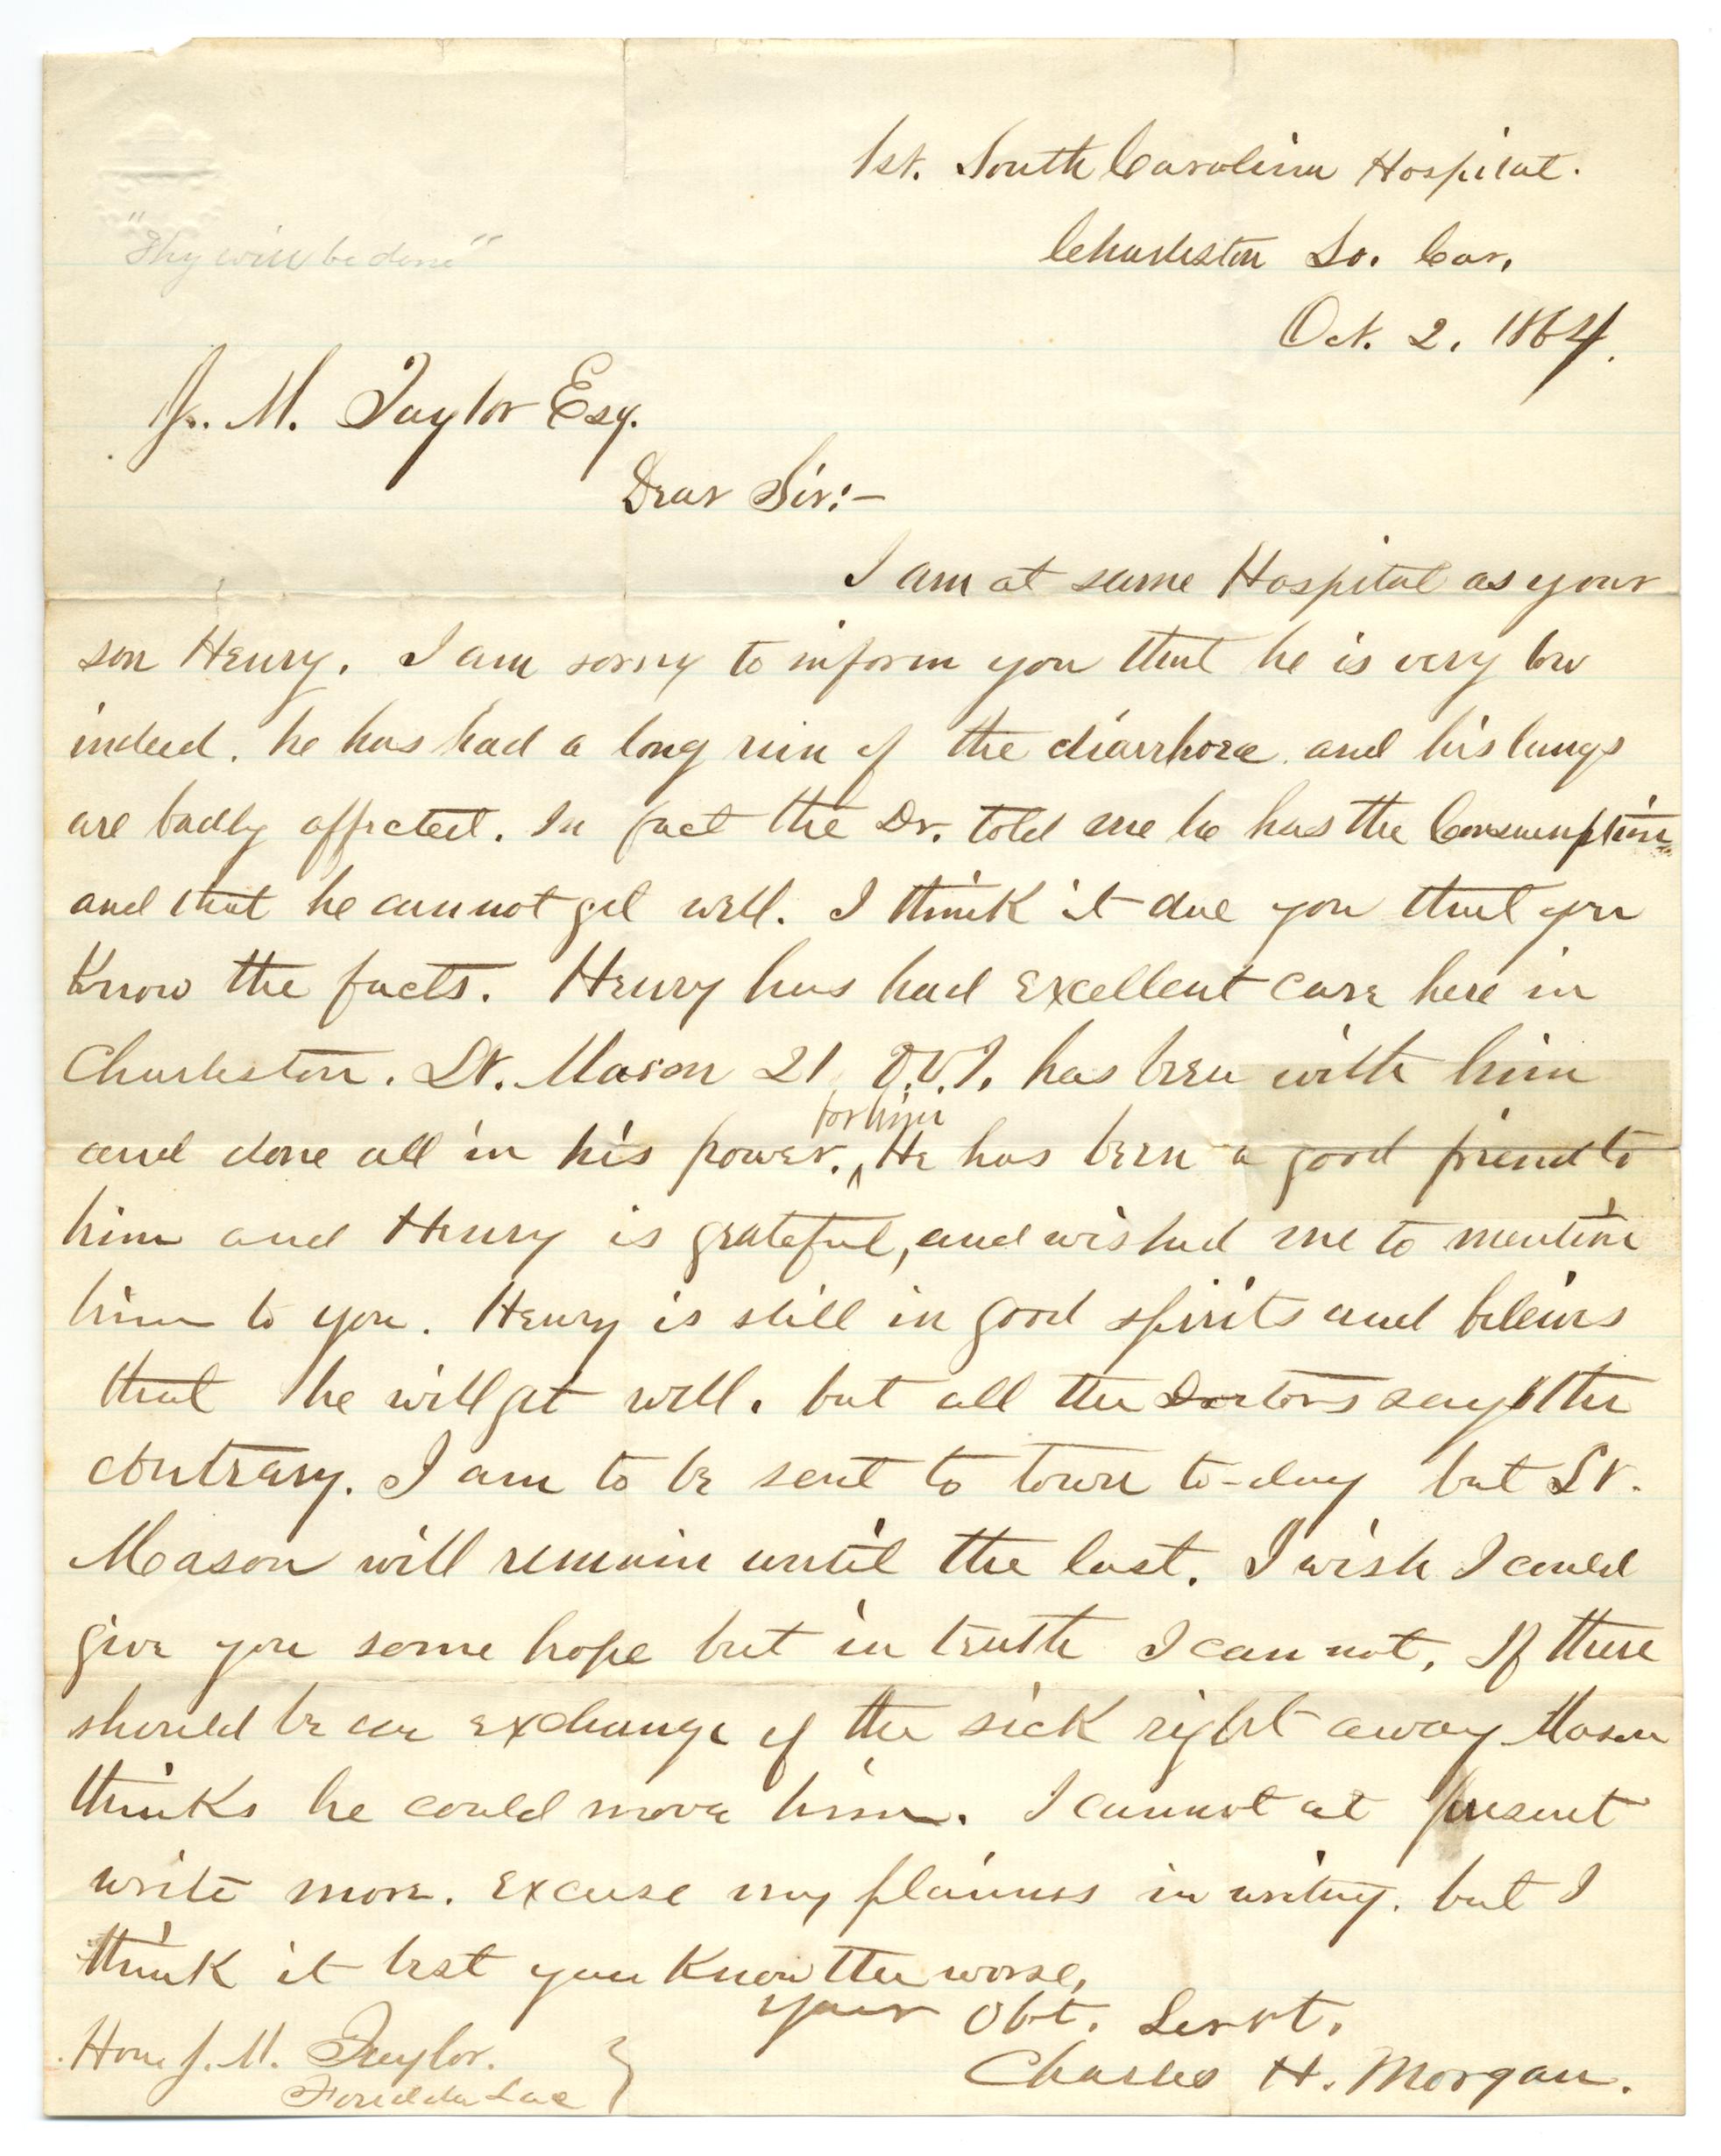 1st. South Carolina Hospital.
Charleston So. Car.
Oct. 2. 1864.
"Thy will be done"
J. M. Taylor Esq.
Dear Sir:-
I am at same Hospital as your
son Henry. I am sorry to inform you that he is very low
indeed. he has had a long run of the diarrhoea. and his lungs
are badly affected. In fact the Dr. told me he has the Consumption
and that he can not get well. I think it due you that you
Know the facts. Henry has had excellent care here in
Charleston. Lt. Mason 21 O.V.I. has been with him
for him
and done all in his power. ^ He has been a good friend to
him and Henry is grateful, and wished me to mention
him to you. Henry is still in good spirits and beleivs
that he will get well. but all the Doctors say the
contrary. I am to be sent to town to-day but Lt.
Mason will remain until the last. I wish I could
give you some hope but in truth I can not. If there
should be an exchange of the sick right away Mason
thinks he could move him. I cannot at present
write more. Excuse my plainness in writing. but I
think it best you Know the worse,
Your Obt. Servt.
Charles H. Morgan.
Hon J. M. Taylor.
Fond du Lac